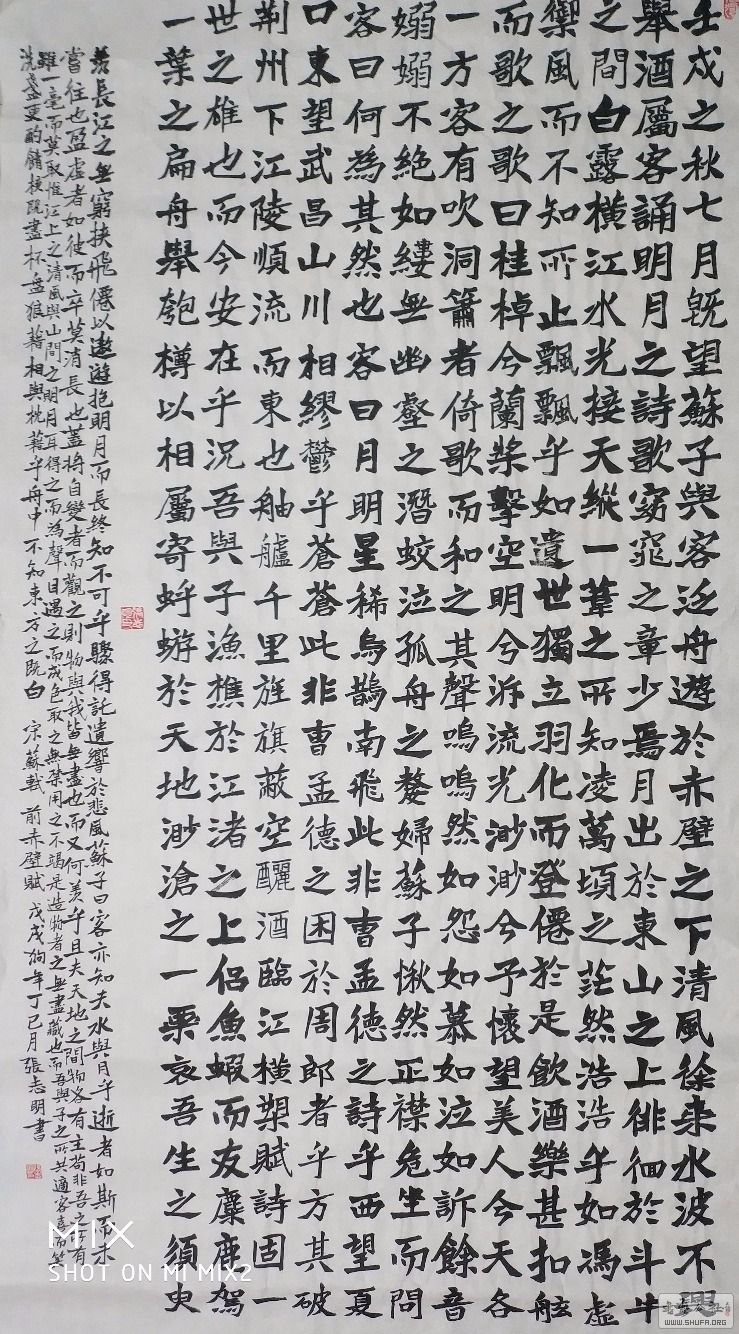 壬戌之秋七月旣望蘇子與客泛舟遊於赤壁之下清風徐來水波不興
舉酒屬客誦明月之詩歌窈窕之章少焉月出於東山之上徘徊於斗牛
之間白露橫江水光接天縱一葦之所知凌萬頃之茫然浩浩乎如馮虛
禦風而不知所止飄飄乎如遺世獨立羽化而登僊於是飲酒樂甚扣舷
而歌之歌曰桂棹兮蘭槳擊空明兮泝流光渺渺兮予懷望美人兮天各
一方客有吹洞簫者倚歌而和之其聲嗚嗚然如怨如慕如泣如訴餘音
嫋嫋不絕如縷無幽壑之潛蛟泣孤舟之嫠婦蘇子愀然正襟危坐而問
客曰何為其然也客曰月明星稀烏鵲南飛此非曹孟德之詩乎西望夏
口東望武昌山川相繆鬱乎蒼蒼此非曹孟德之困於周郎者乎方其破
荆州下江陵順流而東也舳艫千里旌旗蔽空釃酒臨江橫槊賦詩固一
世之雄也而今安在乎況吾與子漁樵於江渚之上侶魚蝦而友麋鹿駕
一葉之扁舟舉匏樽以相屬寄蜉蝣於天地渺滄之一粟哀吾生之須臾
羨長江之無窮挾飛僊以遨遊抱明月而長終知不可乎驟得託遺響於悲風蘇子曰客亦知夫水與月乎逝者如斯而未
嘗往也盈虛者如彼而卒莫消長也蓋將自變者而觀之則物與我皆無盡也而又何羨乎且夫天地之間物各有主苟非吾之所有
雖一毫而莫取惟江上之清風與山間之明月耳得之而為聲目遇之而成色取之無禁用之不竭是造物者之無盡藏也而吾與子之所共適客喜而笑
洗盞更酌餚核既盡杯盤狼藉相與枕藉乎舟中不知東方之既白 宋蘇軾 前赤壁賦 戊戌狗年丁巳月張志明書
MIX
SHOT ON MI MIX2
WWW.SHUFA.ORG